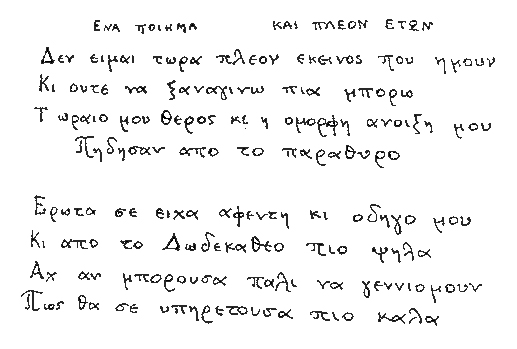 ΕΝΑ ΠΟΙΗΜΑ ΚΑΙ ΠΛΕΟΝ ΕΤΩΝ
Δεν ειμαι τωρα πλεον εκεινος που ημουν
Κι ουτε να ξαναγινω πια μπορω
Τ ωραιο μου θερος κι η ομορφη ανοιξη μου
Πηδησαν απο το παραθυρο
Ερωτα σε ειχα αφεντη κι οδηγο μου
Κι απο το Δωδεκαθεο πιο ψηλα
Αχ αν μπορουσα παλι να γεννιομουν
Πως θα σε υπηρετουσα πιο καλα